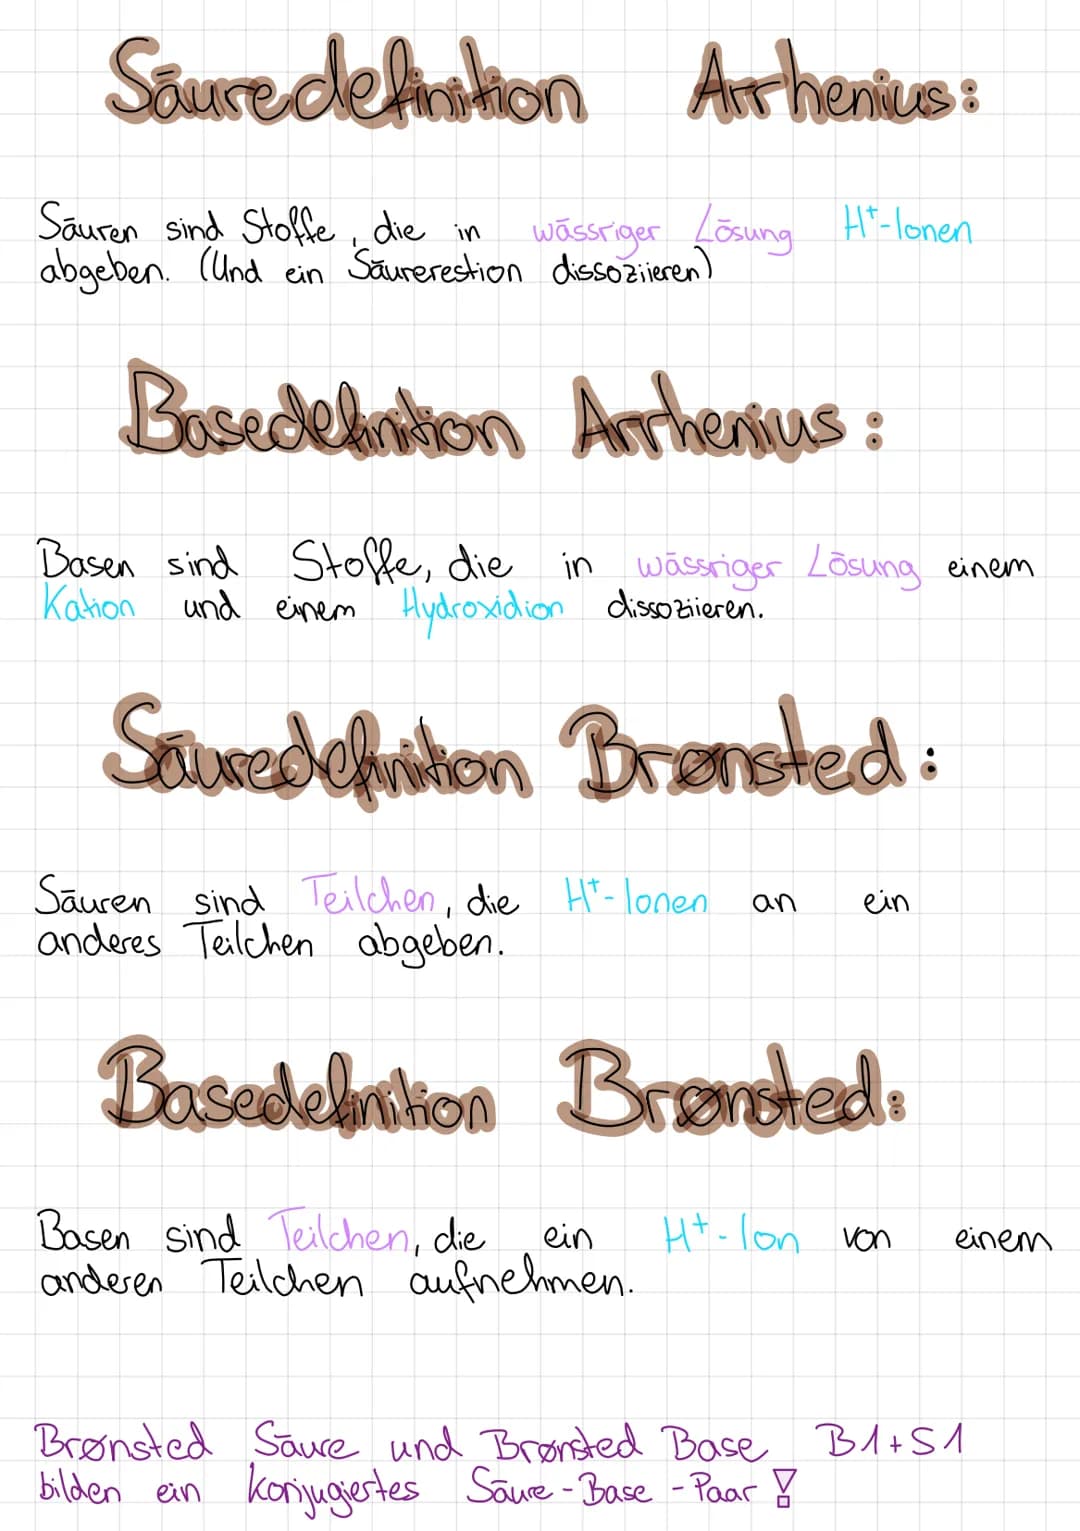 Säuredefinition Arrhenius:
Säuren sind Stoffe, die in wässriger Lösung H⁺-Ionen
abgeben. (Und ein Säurerestion dissoziieren)
Basedefinition Arrhenius:
Basen sind Stoffe, die in wässriger Lösung einem
Kation und einem Hydroxidion dissoziieren.
Säuredefinition Brønsted:
Säuren sind Teilchen, die H⁺-Ionen an ein
anderes Teilchen abgeben.
Basedefinition Brønsted:
Basen sind Teilchen, die ein H⁺-Ion von einem
anderen Teilchen aufnehmen.
Brønsted Säure und Brønsted Base B1+S1
bilden ein konjugiertes Säure-Base-Paar!